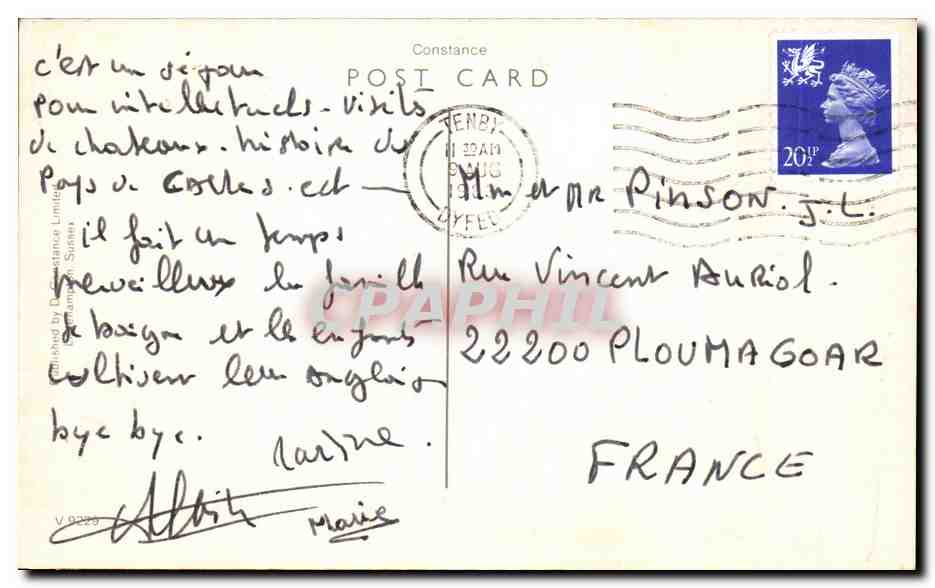 Constance
POST CARD
c'est un séjour
pour intellectuels - visites
de chateaux - histoire du
Pays de Galles. ect —
il fait un temps
merveilleux la famille
se baigne et les enfants
cultivent leur Anglais
bye bye.
Marie
V 9229
Published by D. Constance Limited,
Littlehampton, Sussex
TENBY
11 30 AM
AUG
DYFED
20½P
Mme et MR PINSON. J.L.
Rue Vincent AURIOL.
22200 PLOUMAGOAR
FRANCE
CPAPHIL